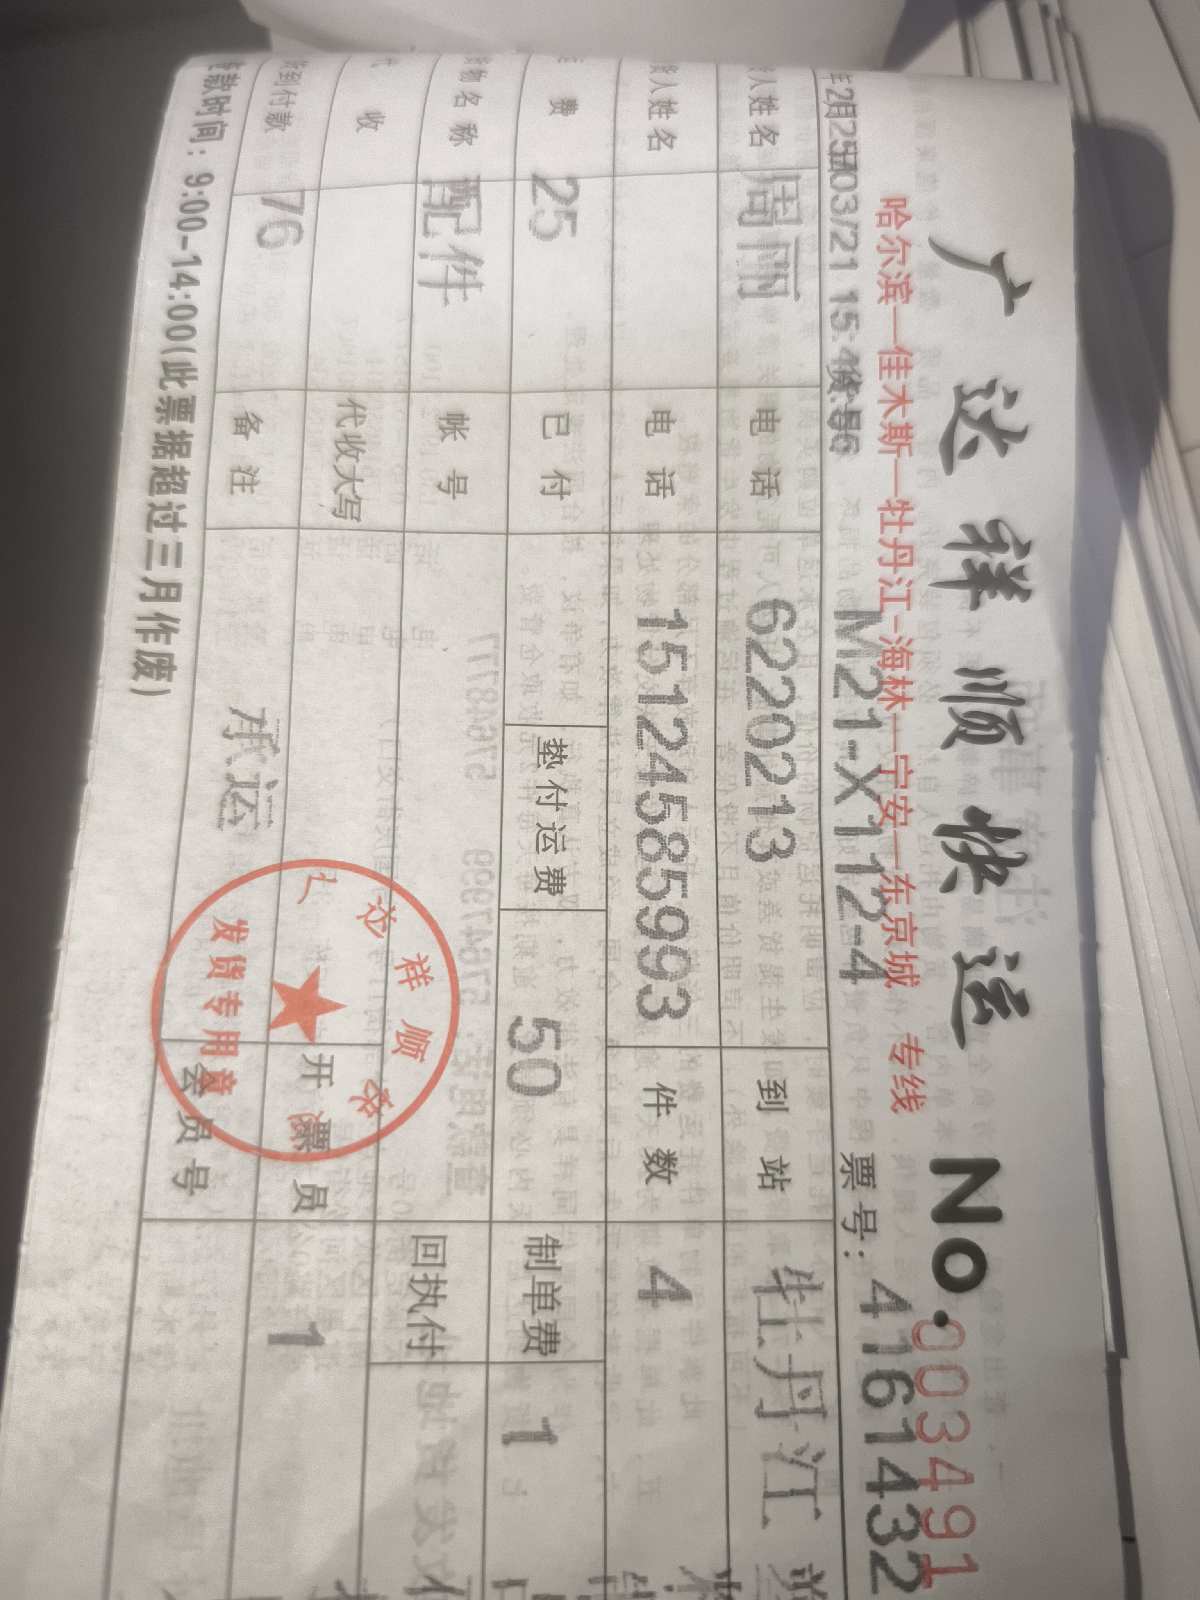 广达祥顺快运 No.0034911
哈尔滨—佳木斯—牡丹江—海林—宁安—东京城 专线
年2月25日03/21 15:46 货号:56 M21-X112-4 票号:4161432
人姓名 周丽 电话 6220213 到站 牡丹江
人姓名 电话 15124585993 件数 4
费 25 已付 垫付运费 50 制单费 1
货物名称 配件 帐号 回执付
代收 代收大写 开票员 1
货到付款 76 备注 承运 会员号
广达祥顺快运
发货专用章
取款时间:9:00-14:00(此票据超过三月作废)